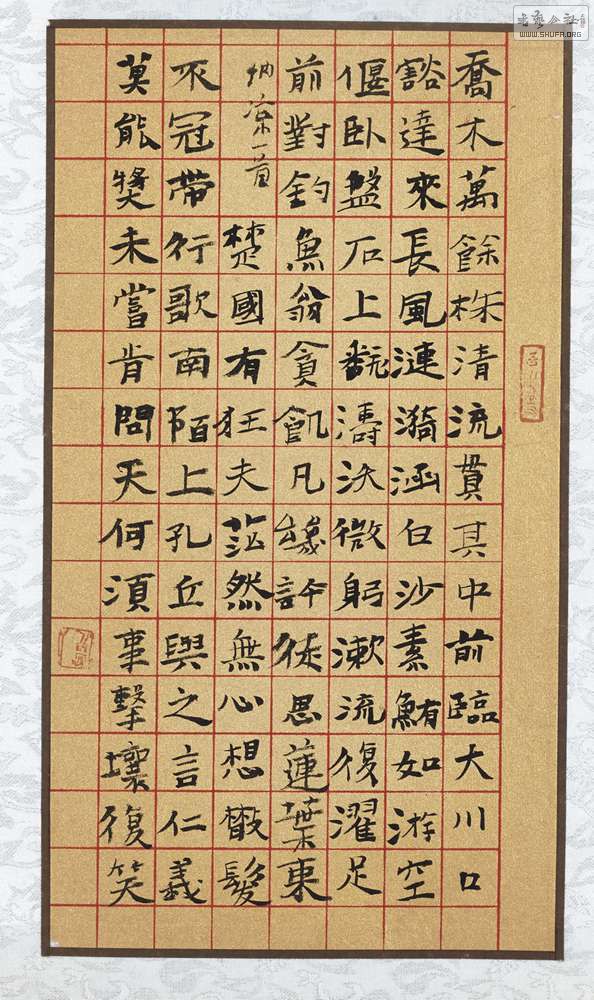 喬木萬餘株清流貫其中前臨大川口
豁達來長風漣漪涵白沙素鮪如游空
偃臥盤石上翻濤沃微躬漱流復濯足
前對釣魚翁貪餌凡幾許徒思蓮葉東
納涼一首
楚國有狂夫茫然無心想散髮
不冠帶行歌南陌上孔丘與之言仁義
莫能獎未嘗肯問天何須事擊壤復笑
WWW.SHUFA.ORG